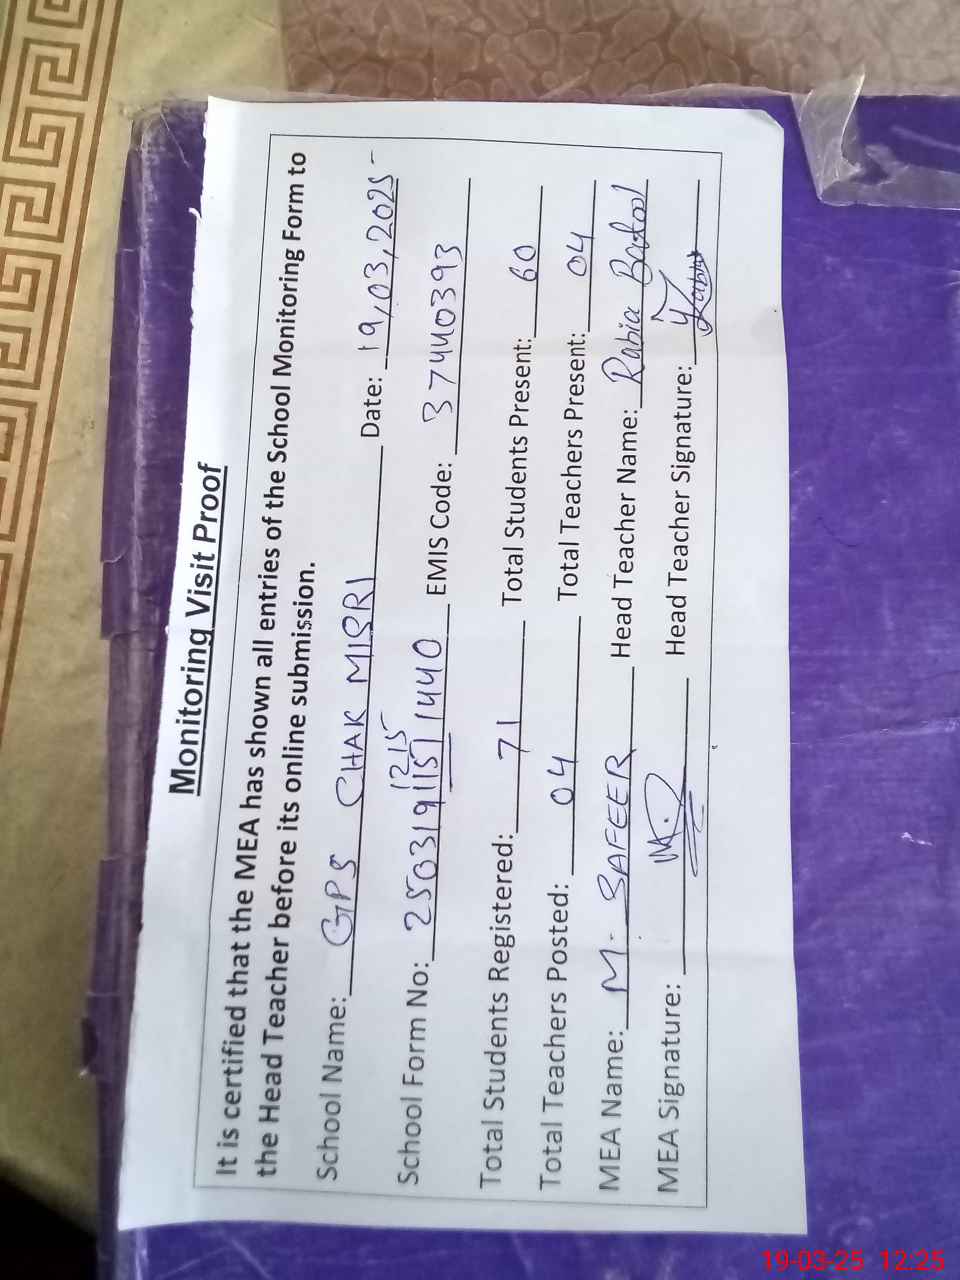 Monitoring Visit Proof
It is certified that the MEA has shown all entries of the School Monitoring Form to
the Head Teacher before its online submission.
School Name: GPS CHAK MISRI Date: 19,03,2025
School Form No: 250319 1151 1440 EMIS Code: 37440393
1215
Total Students Registered: 71 Total Students Present: 60
Total Teachers Posted: 04 Total Teachers Present: 04
MEA Name: M. SAFEER Head Teacher Name: Rabia Batool
MEA Signature: Head Teacher Signature: Rabia
19-03-25 12:25